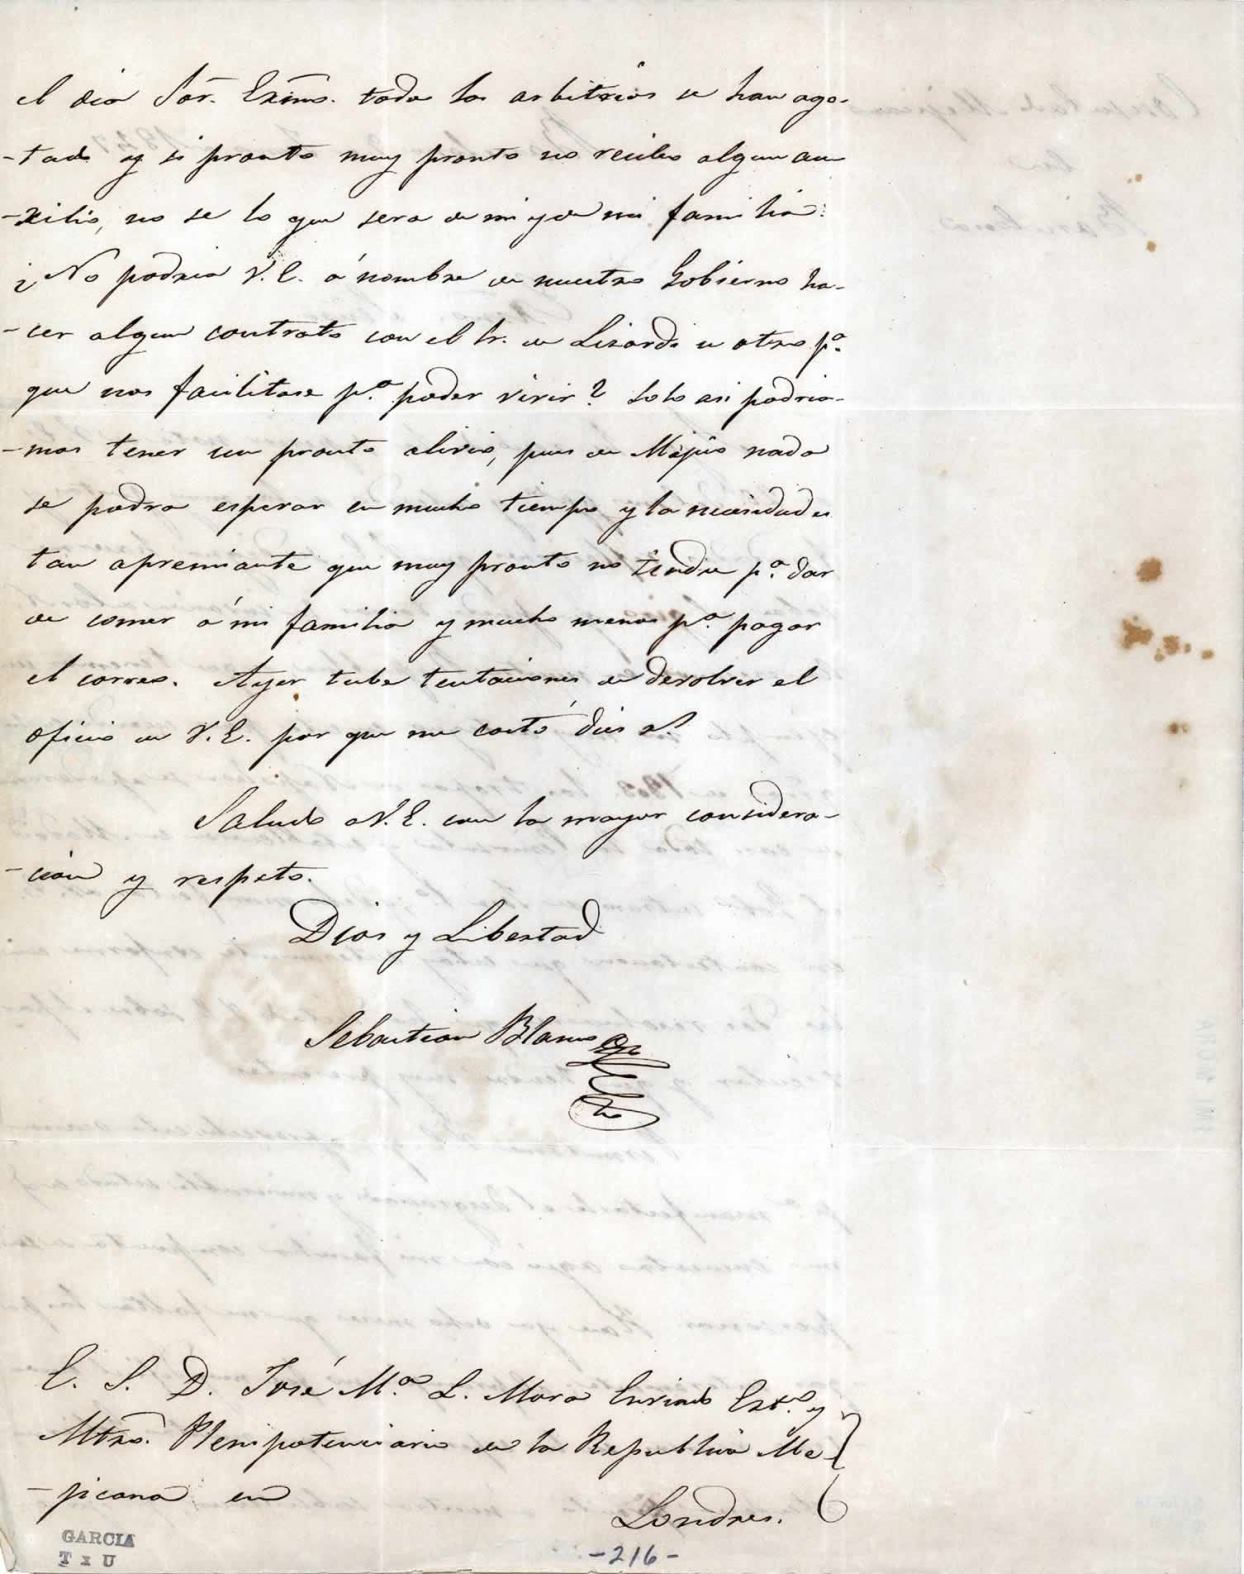 el dia Sor. Exmo. todos los arbitrios se han ago-
-tado y si pronto muy pronto no recibo algun au
-xilio, no se lo que sera de mi y de mi familia.
¿No podria V.E. á nombre de nuestro Gobierno ha-
-cer algun contrato con el Sr. de Lizardi u otro pa.
que nos facilitase pa. poder vivir? Solo asi podria-
-mos tener un pronto alivio, pues de Mejico nada
se podra esperar en mucho tiempo y la necesidad es
tan apremiante que muy pronto no tendre pa. dar
de comer á mi familia y mucho menos pa. pagar
el correo. Ayer tube tentaciones de devolver el
oficio de V.E. por que me costó dies
Saludo a V.E. con la mayor considera-
-cion y respeto.
Dios y Libertad
Sebastian Blanco
E. S. D. José Ma. L. Mora Enviado Exto. y
Mtro. Plenipotenciario de la Republica Me-
-jicana en
Londres.
GARCIA
T x U
-216-